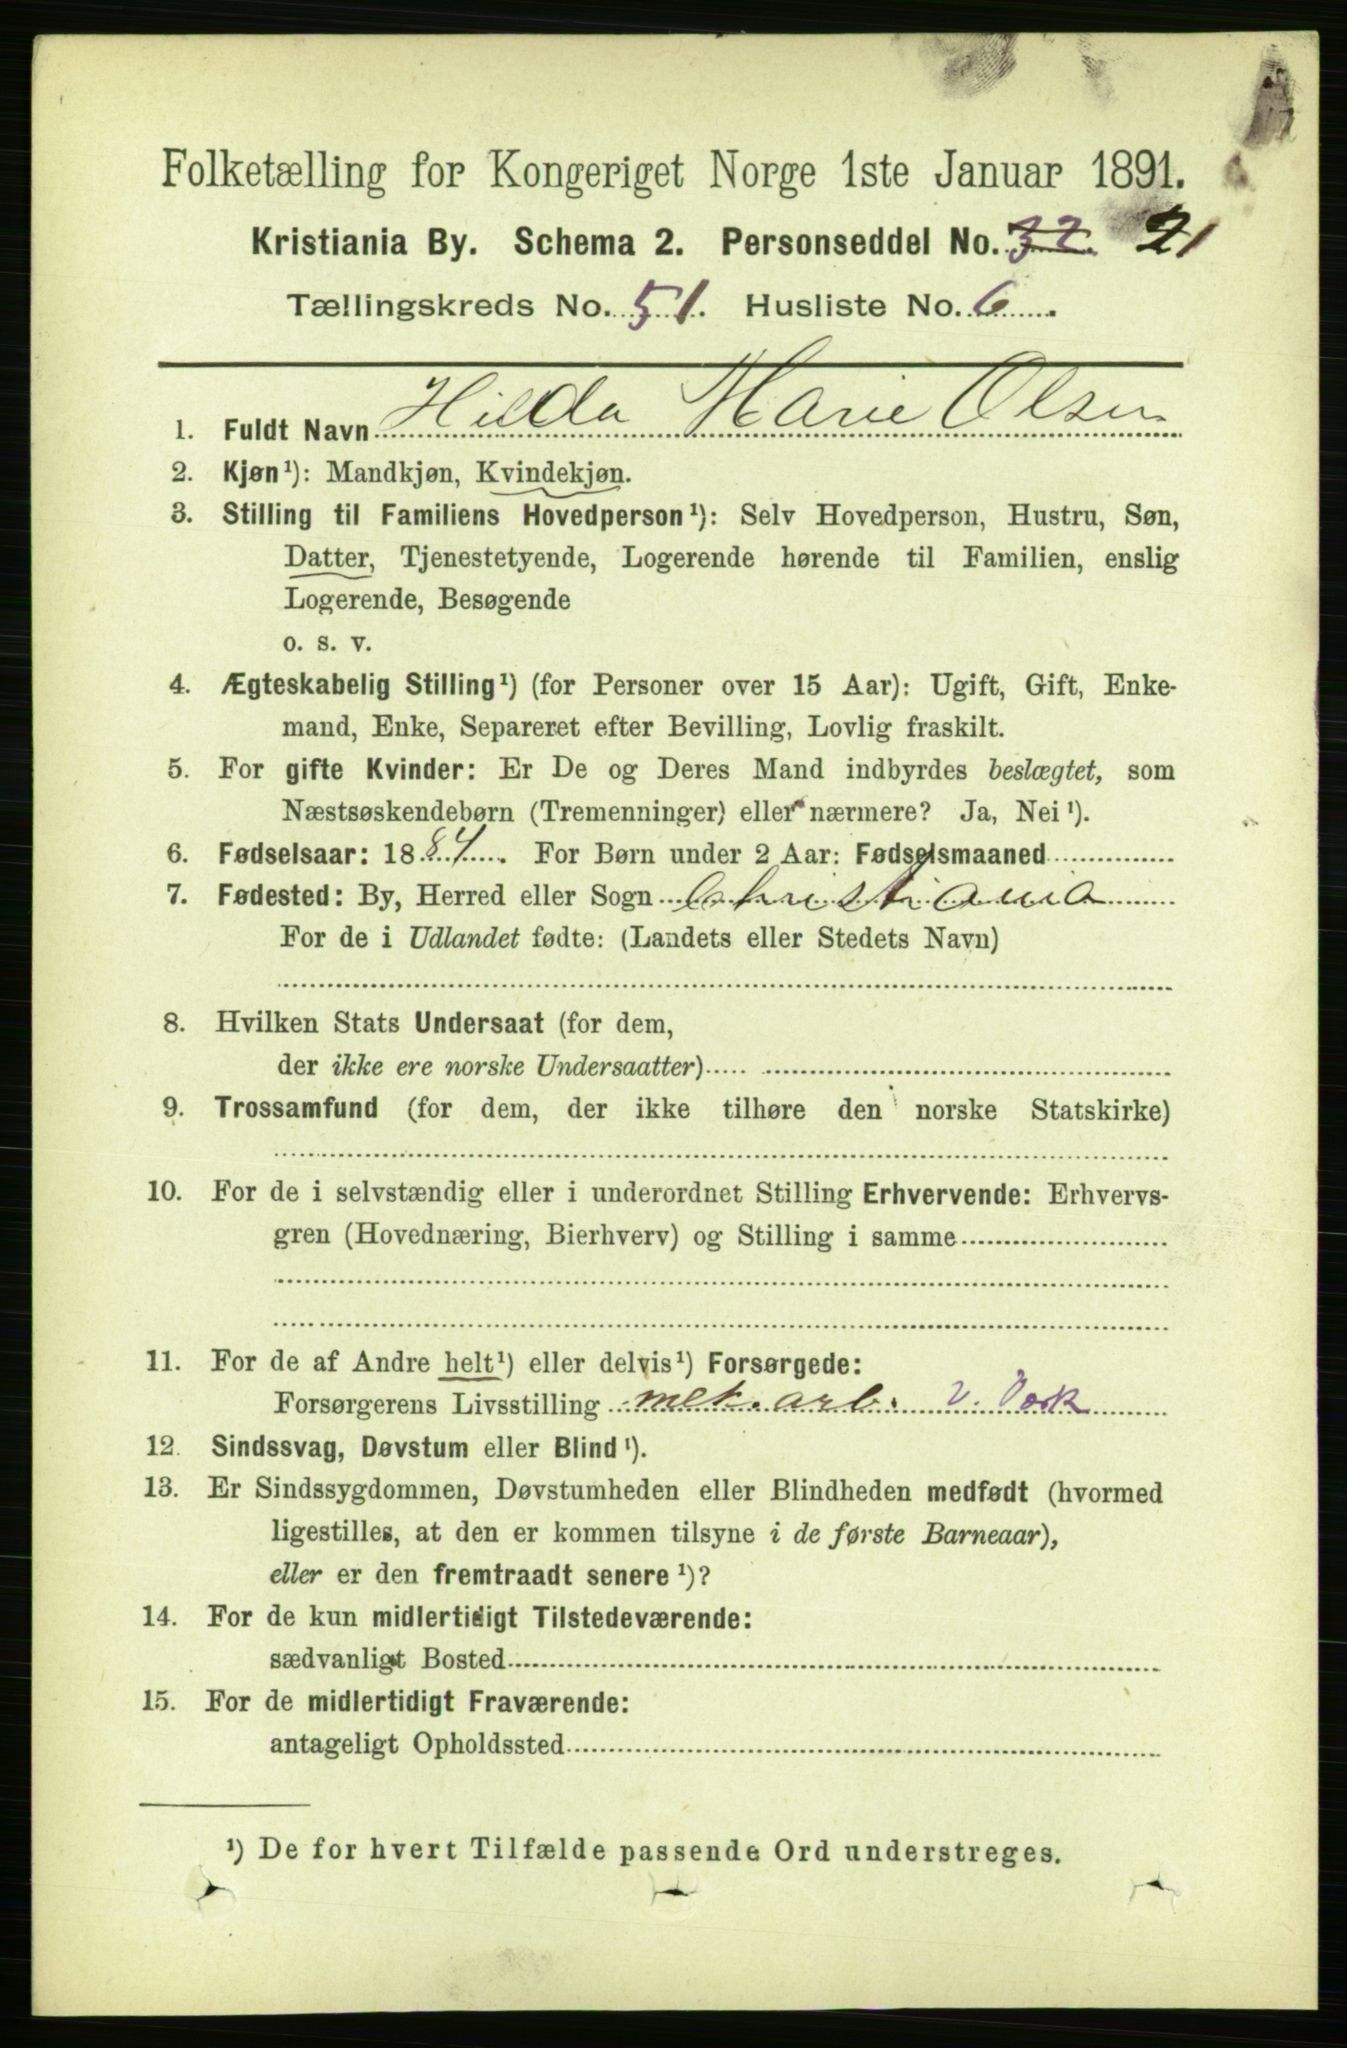 Folketælling for Kongeriget Norge 1ste Januar 1891.
Kristiania By. Schema 2. Personseddel No. 32. 21
Tællingskreds No. 51. Husliste No. 6.
1. Fuldt Navn Hilda Marie Olsen
2. Kjøn¹): Mandkjøn, Kvindekjøn.
3. Stilling til Familiens Hovedperson¹): Selv Hovedperson, Hustru, Søn,
Datter, Tjenestetyende, Logerende hørende til Familien, enslig
Logerende, Besøgende
o. s. v.
4. Ægteskabelig Stilling¹) (for Personer over 15 Aar): Ugift, Gift, Enke-
mand, Enke, Separeret efter Bevilling, Lovlig fraskilt.
5. For gifte Kvinder: Er De og Deres Mand indbyrdes beslægtet, som
Næstsøskendebørn (Tremenninger) eller nærmere? Ja, Nei¹).
6. Fødselsaar: 1884. For Børn under 2 Aar: Fødselsmaaned
7. Fødested: By, Herred eller Sogn Christiania
For de i Udlandet fødte: (Landets eller Stedets Navn)
8. Hvilken Stats Undersaat (for dem,
der ikke ere norske Undersaatter)
9. Trossamfund (for dem, der ikke tilhøre den norske Statskirke)
10. For de i selvstændig eller i underordnet Stilling Erhvervende: Erhvervs-
gren (Hovednæring, Bierhverv) og Stilling i samme
11. For de af Andre helt¹) eller delvis¹) Forsørgede:
Forsørgerens Livsstilling mek. arb. v.
12. Sindssvag, Døvstum eller Blind¹).
13. Er Sindssygdommen, Døvstumheden eller Blindheden medfødt (hvormed
ligestilles, at den er kommen tilsyne i de første Barneaar),
eller er den fremtraadt senere¹)?
14. For de kun midlertidigt Tilstedeværende:
sædvanligt Bosted
15. For de midlertidigt Fraværende:
antageligt Opholdssted
¹) De for hvert Tilfælde passende Ord understreges.